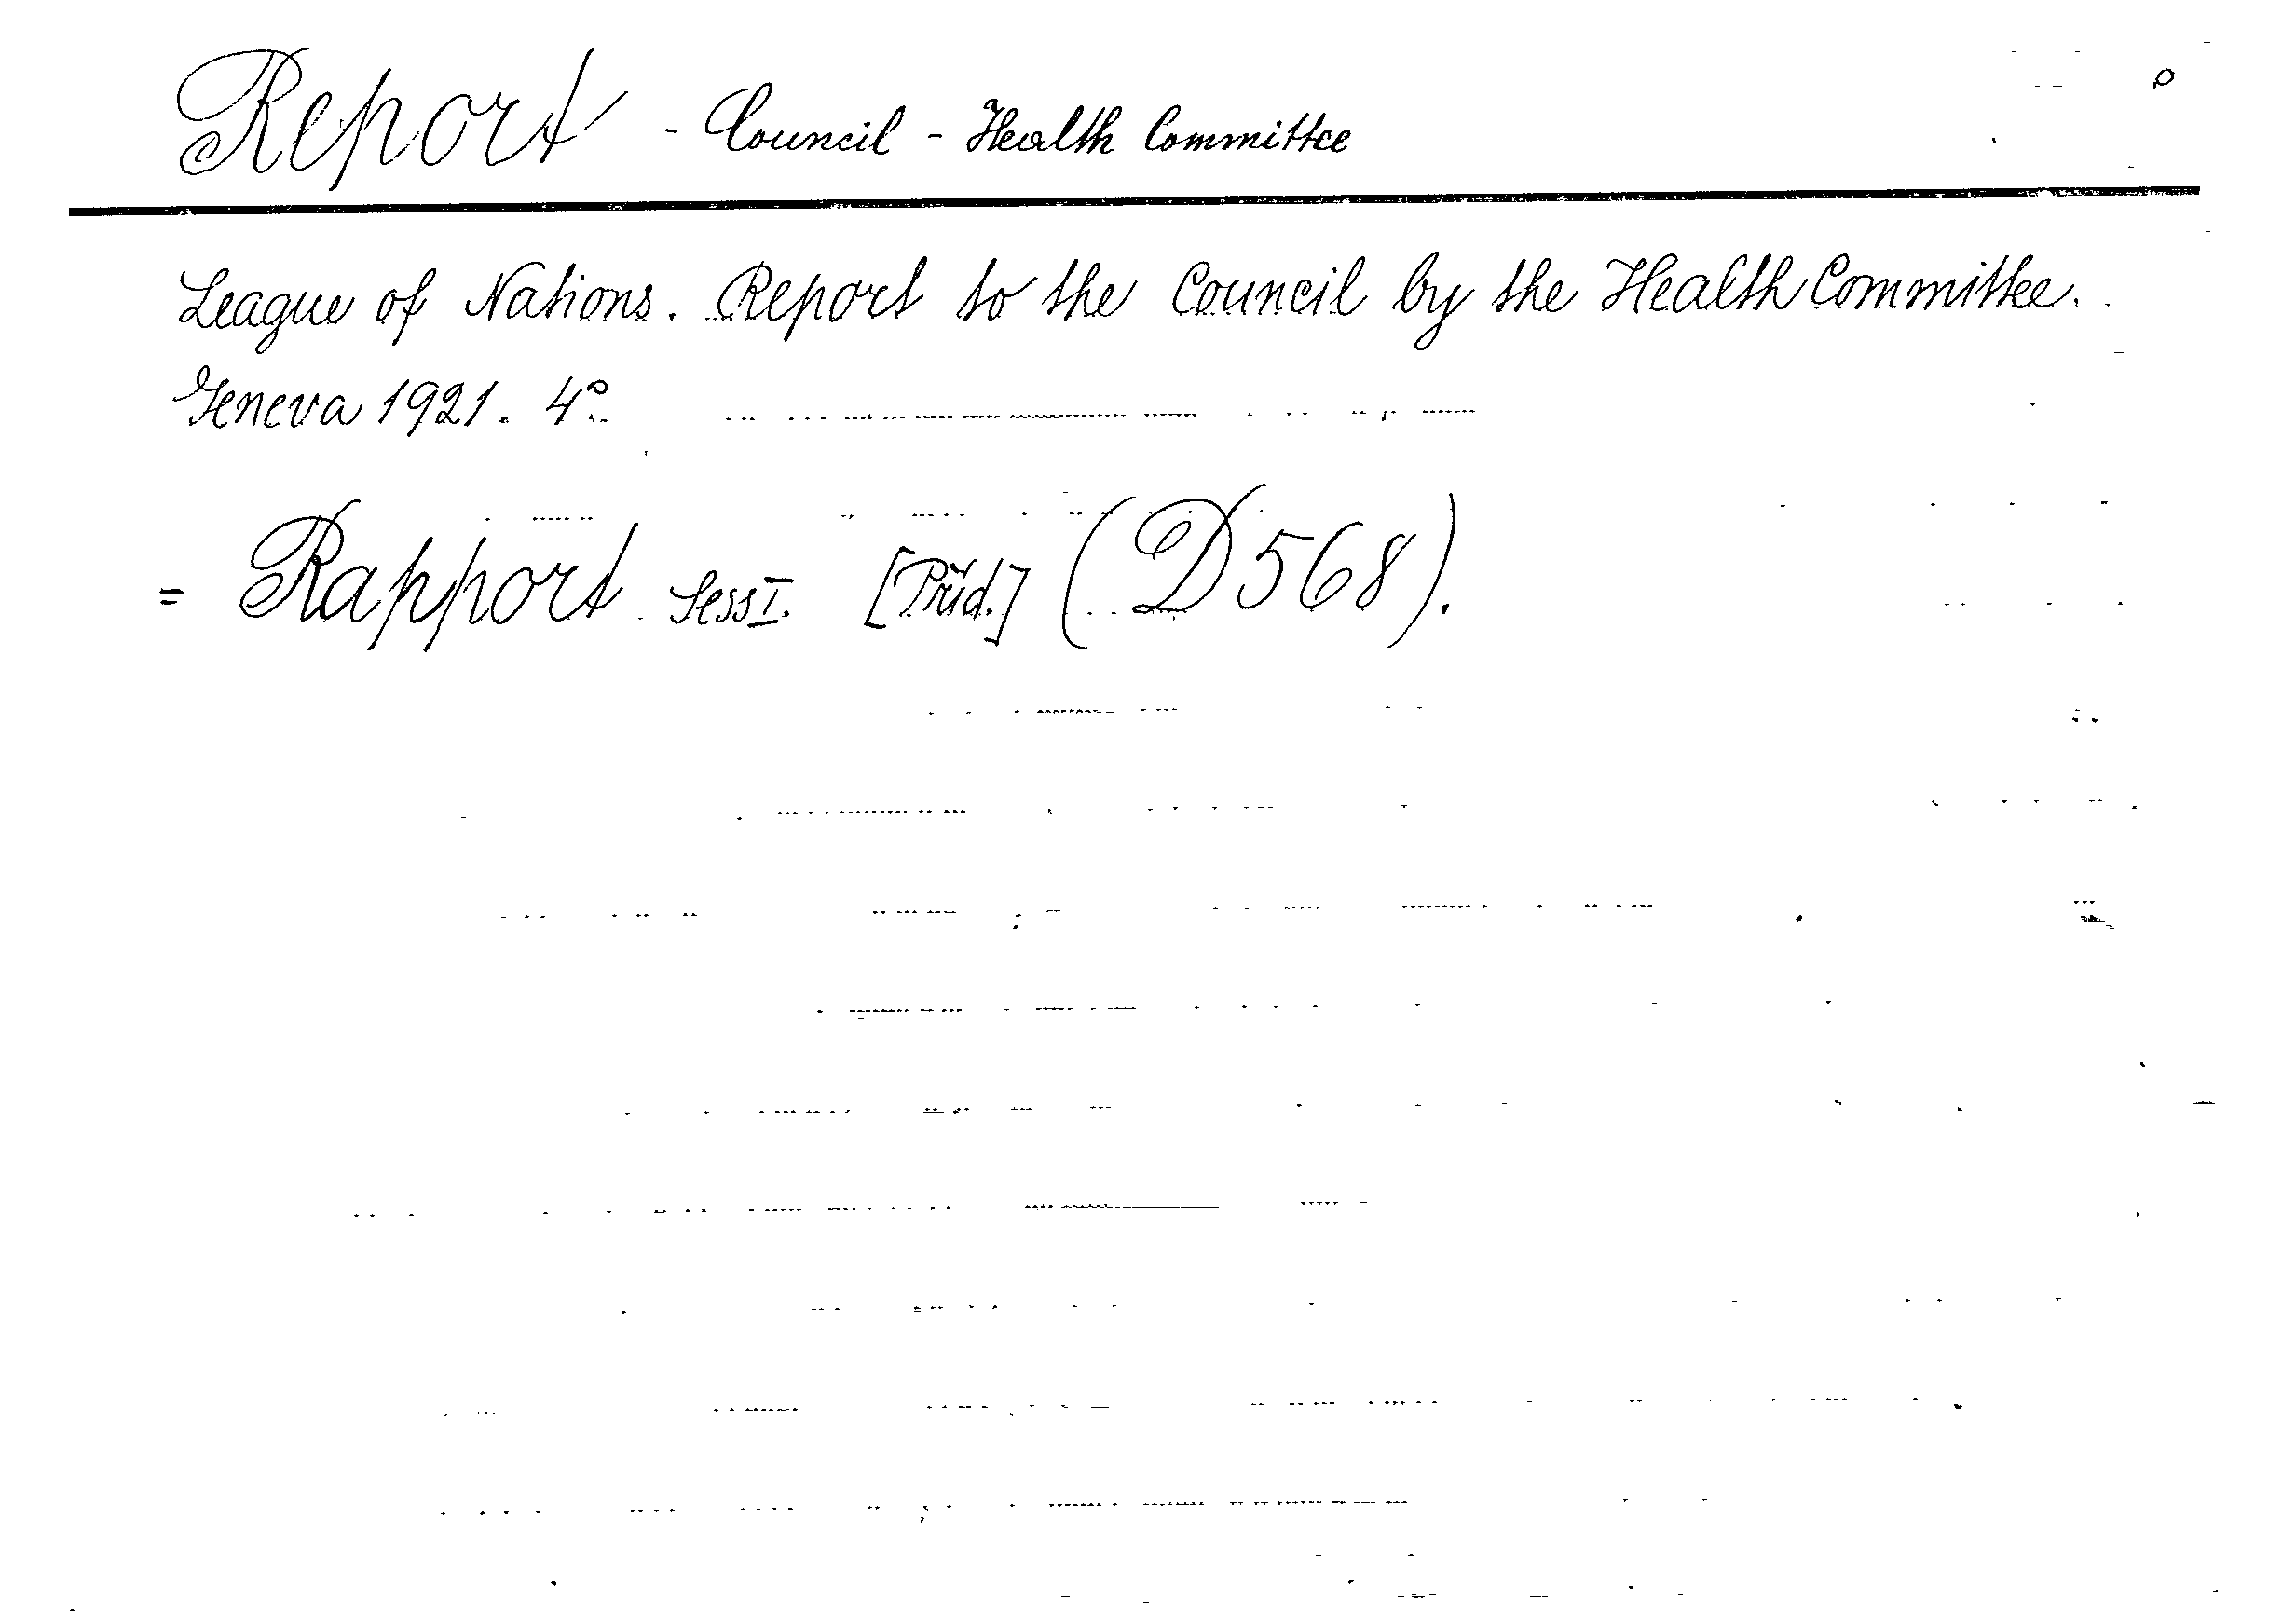 Report - Council - Health Committee
League of Nations. Report to the Council by the Health Committee.
Geneva 1921. 4°
= Rapport Sess I. [Příd.] (D 568).